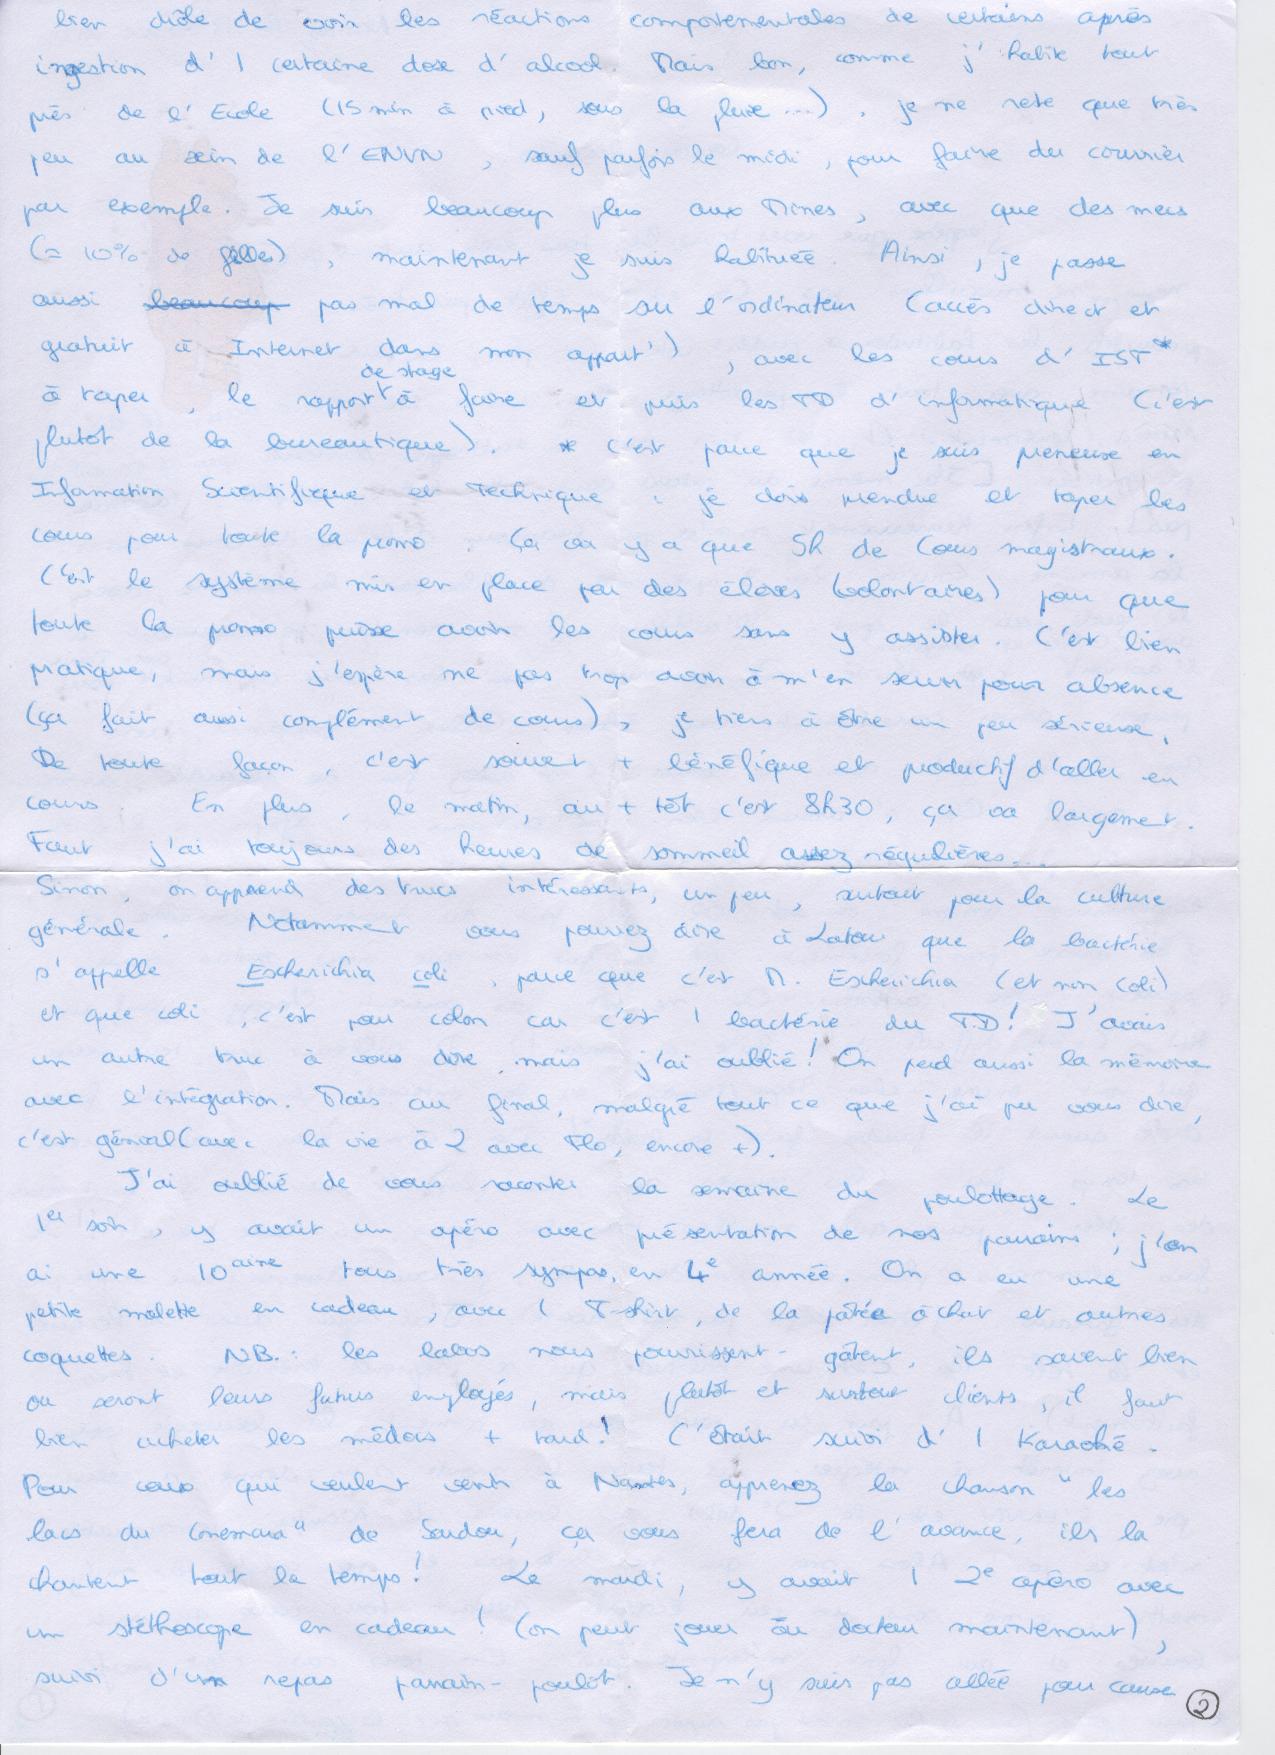 bien drôle de voir les réactions comportementales de certains après
ingestion d'1 certaine dose d'alcool. Mais bon, comme j'habite tout
près de l'Ecole (15 min à pied, sous la pluie ...), je ne reste que très
peu au sein de l'ENVN, sauf parfois le midi, pour faire du courrier
par exemple. Je suis beaucoup plus aux Mines, avec que des mecs
(≃ 10% de filles), maintenant je suis habituée. Ainsi, je passe
aussi beaucoup pas mal de temps su l'ordinateur (accès direct et
gratuit à Internet dans mon appart'), avec les cours d'IST*
à taper, le rapport de stage à faire et puis les TD d'informatique (c'est
plutôt de la bureautique). * C'est parce que je suis preneuse en
Information Scientifique et Technique : je dois prendre et taper les
cours pour toute la promo. Ça va y a que 5h de Cours magistraux.
C'est le système mis en place par des élèves (volontaires) pour que
toute la promo puisse avoir les cours sans y assister. C'est bien
pratique, mais j'espère ne pas trop avoir à m'en servir pour absence
(ça fait aussi complément de cours), je tiens à être un peu sérieuse.
De toute façon, c'est souvent + bénéfique et productif d'aller en
cours. En plus, le matin, au + tôt c'est 8h30, ça va largement.
Faut j'ai toujours des heures de sommeil assez régulières...
Sinon, on apprend des trucs intéressants, un peu, surtout pour la culture
générale. Notamment vous pouvez dire à que la bactérie
s'appelle Escherichia coli, parce que c'est M. Escherichia (et non Coli)
et que coli, c'est pour colon car c'est 1 bactérie du T.D! J'avais
un autre truc à vous dire mais j'ai oublié! On perd aussi la mémoire
avec l'intégration. Mais au final, malgré tout ce que j'ai pu vous dire,
c'est génial (avec la vie à 2 avec Flo, encore +).
J'ai oublié de vous raconter la semaine du poulottage. Le
1er soir, y avait un apéro avec présentation de nos parrains; j'en
ai une 10aine tous très sympas, en 4e année. On a eu une
petite malette en cadeau, avec 1 T-shirt, de la pâtée à chat et autres
coquettes. NB.: les labos nous pourrissent-gâtent, ils savent bien
ou seront leurs futurs employés, mais plutôt et surtout clients, il faut
bien acheter les médocs + tard! C'était suivi d'1 Karaoké.
Pour ceux qui veulent venir à Nantes, apprenez la chanson "les
lacs du Connemara" de Sardou, ça vous fera de l'avance, ils la
chantent tout le temps! Le mardi, y avait 1 2e apéro avec
un stéthoscope en cadeau! (on peut jouer au docteur maintenant),
suivi d'un repas parrain-poulot. Je n'y suis pas allée pour cause
2